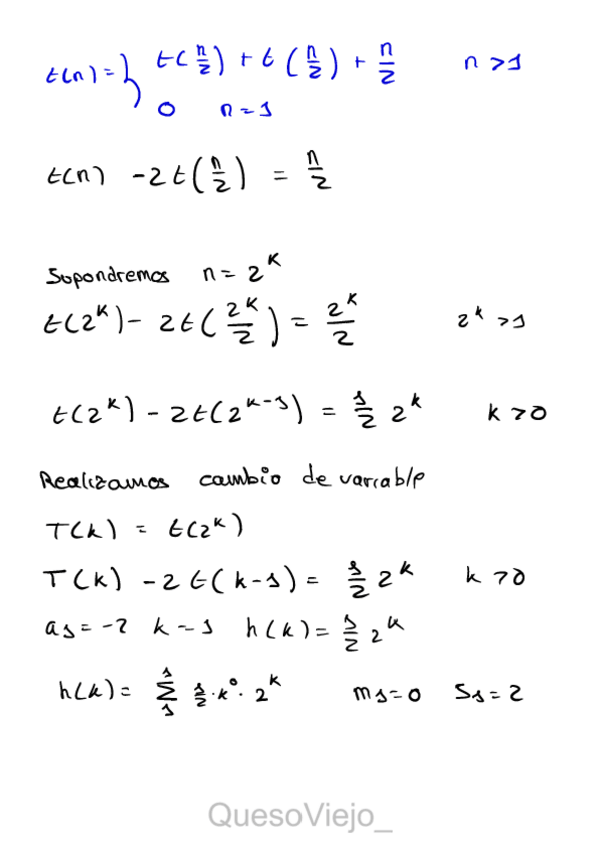 t(n) = { t(n/2) + t(n/2) + n/2 n > 1
0 n = 1
t(n) - 2t(n/2) = n/2
Supondremos n = 2^k
t(2^k) - 2t(2^k/2) = 2^k/2 2^k > 1
t(2^k) - 2t(2^k-1) = 1/2 2^k k > 0
Realizamos cambio de variable
T(k) = t(2^k)
T(k) - 2t(k-1) = 1/2 2^k k > 0
a1 = -2 k - 1 h(k) = 1/2 2^k
h(k) = Σ 1 1 1/2 · k^0 · 2^k m1 = 0 S1 = 2
QuesoViejo_